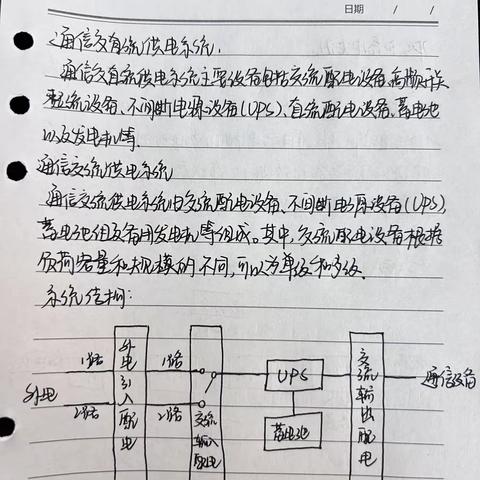 日期 / /
通信交直流供电系统.
通信交直流供电系统主要设备包括交流配电设备、高频开关
整流设备、不间断电源设备(UPS)、直流配电设备、蓄电池
以及发电机等.
通信交流供电系统
通信交流供电系统由交流配电设备、不间断电源设备(UPS),
蓄电池组及备用发电机等组成。其中,交流配电设备根据
负荷容量和规模的不同,可以为单级和多级.
系统结构:
外电
1路
2路
外电引入配电
1路
2路
交流输入配电
UPS
蓄电池
交流输出配电
通信设备